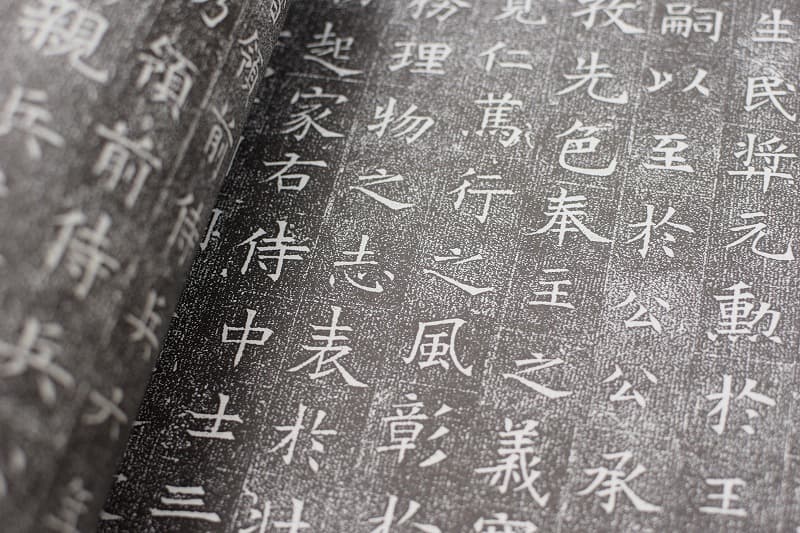 生民元勳於王
嗣以至於公公承
先色奉主之義
仁篤行之風彰於
務理物之志表於壯
起家右侍中士三
領前侍兵六
乃領前侍兵
親兵